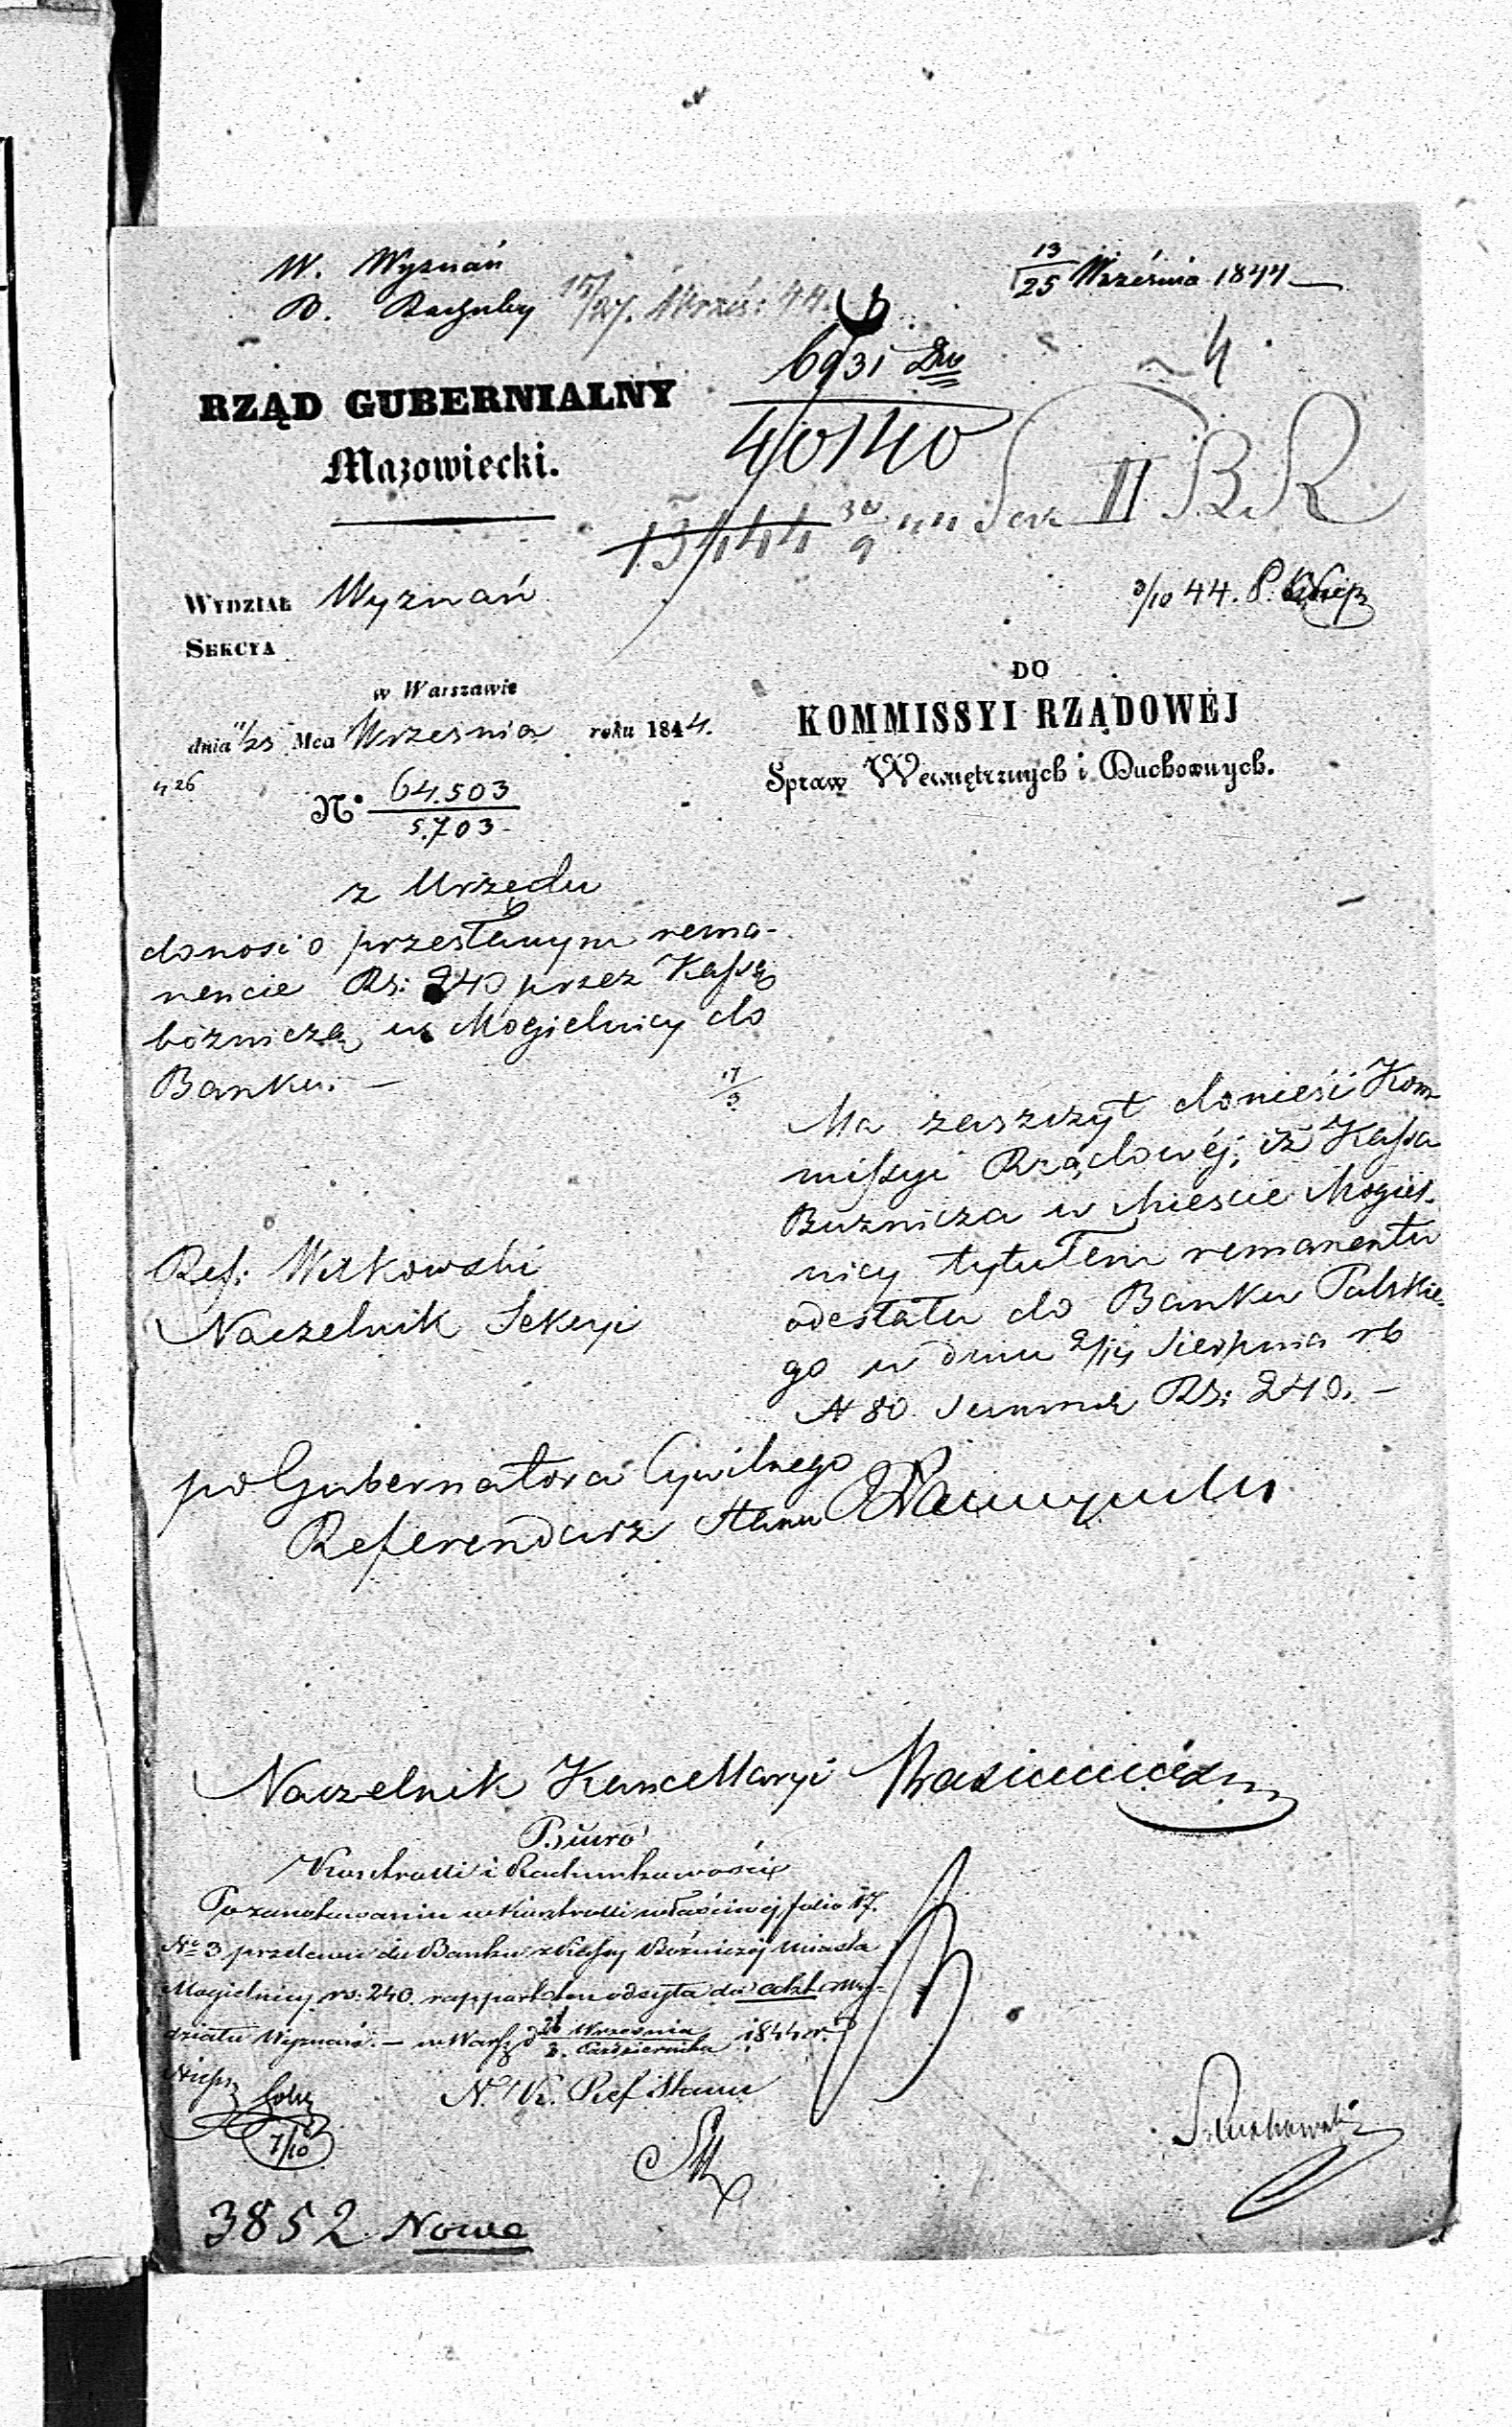 W. Wyznań
B. Rachuby
15/27. Wrześ: 44.
13/25 Września 1844
6931
40140
4
13444 30/9 44 Sek II BR
3/10 44. P.
RZĄD GUBERNIALNY
Mazowiecki.
WYDZIAŁ Wyznań
SEKCYA
w Warszawie
dnia 11/23 Mca Września roku 1844.
426
N° 64.503
5.703
z Urzędu
donosi o przesłanym rema-
nencie RS: 240 przez Kassę
bóżniczą w Mogielnicy do
Banku. —
17/9
DO
KOMMISSYI RZĄDOWÉJ
Spraw Wewnętrznych i Duchownych.
Ma zaszczyt donieść Kom-
missyi Rządowéj, iż Kassa
Buznicza w Mieście Mogiel-
nicy tytułem remanentu
odesłała do Banku Polskie-
go w dniu 2/14 Sierpnia rb
N 80 Summę RS: 240. —
Ref: Witkowski
Naczelnik Sekcyi
po Gubernatora Cywilnego
Referendarz Stanu
Naczelnik Kancellaryi
Biuro
Kontrolli i Rachunkowości
Po zanotowaniu w Kontrolli właściwéj folio 17.
N° 3 przelewu do Banku z Kassy Bóżniczéj Miasta
Mogielnicy rs: 240. rapport ten odsyła do Akt Wy-
działu Wyznań. — w Warsz d 21 Września / 3. Października 1844 r.
N. K. Ref Stanu
7/10
3852 Nowe